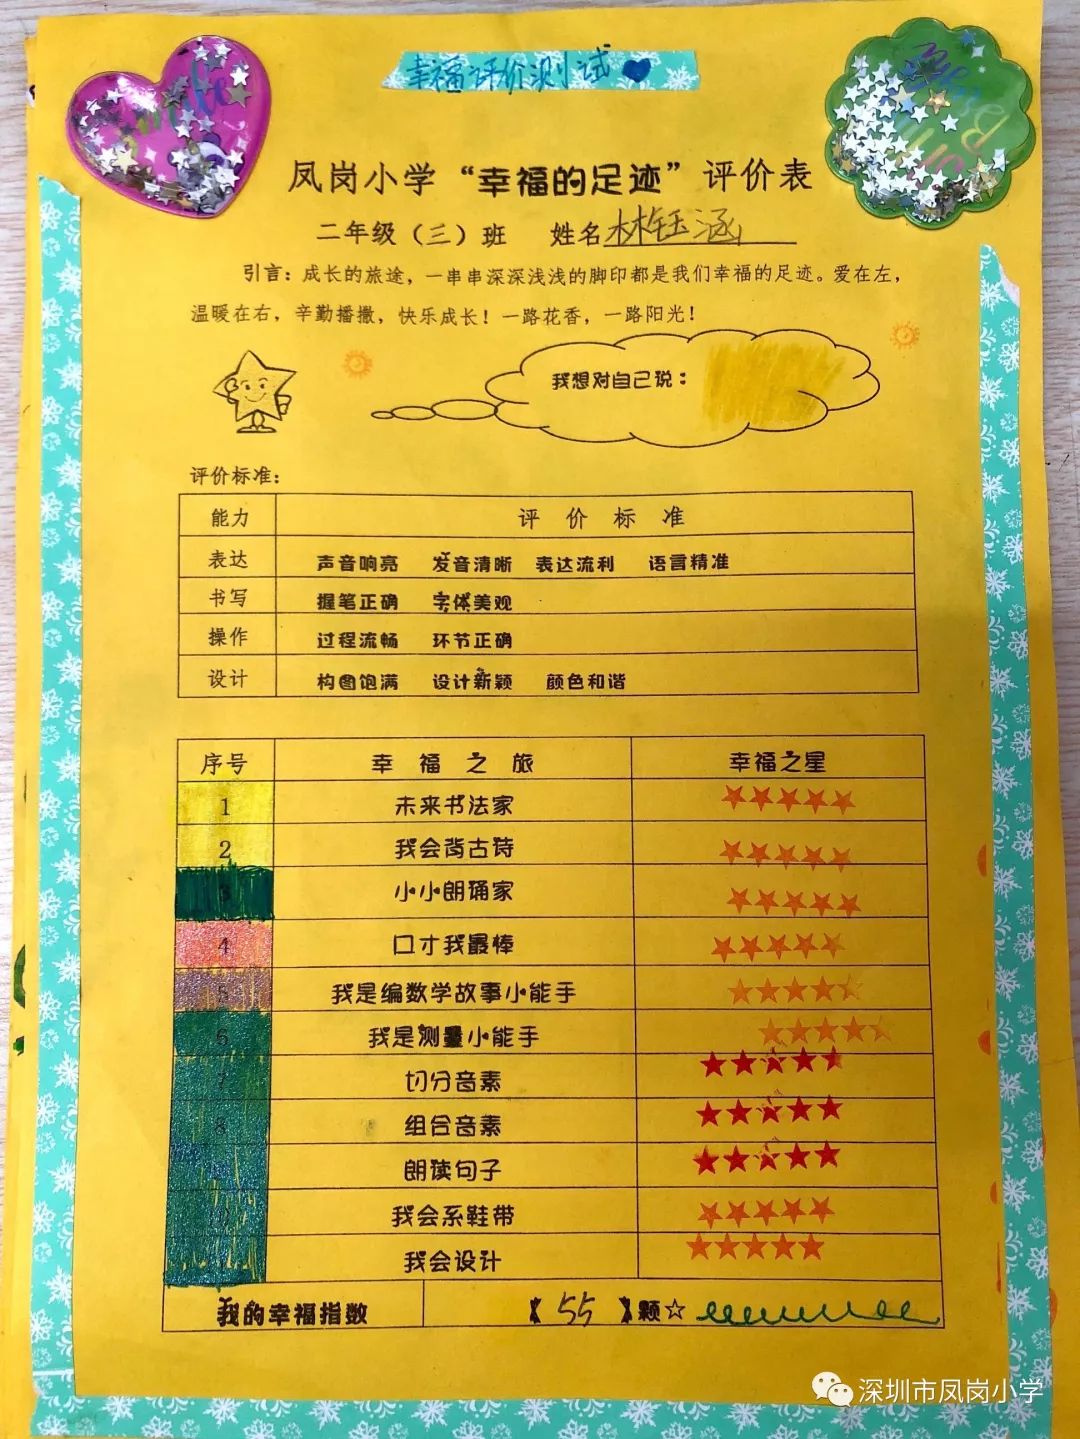 幸福评价测试
凤岗小学“幸福的足迹”评价表
二年级（三）班 姓名林钰涵
引言：成长的旅途，一串串深深浅浅的脚印都是我们幸福的足迹。爱在左，
温暖在右，辛勤播撒，快乐成长！一路花香，一路阳光！
我想对自己说：
评价标准：
能力 评价标准
表达 声音响亮 发音清晰 表达流利 语言精准
书写 握笔正确 字体美观
操作 过程流畅 环节正确
设计 构图饱满 设计新颖 颜色和谐
序号 幸福之旅 幸福之星
1 未来书法家 ★★★★★
2 我会背古诗 ★★★★★
3 小小朗诵家 ★★★★★
4 口才我最棒 ★★★★★
5 我是编数学故事小能手 ★★★★★
6 我是测量小能手 ★★★★★
7 切分音素 ★★★★★
8 组合音素 ★★★★★
朗读句子 ★★★★★
10 我会系鞋带 ★★★★★
我会设计 ★★★★★
我的幸福指数 【55】颗☆
深圳市凤岗小学